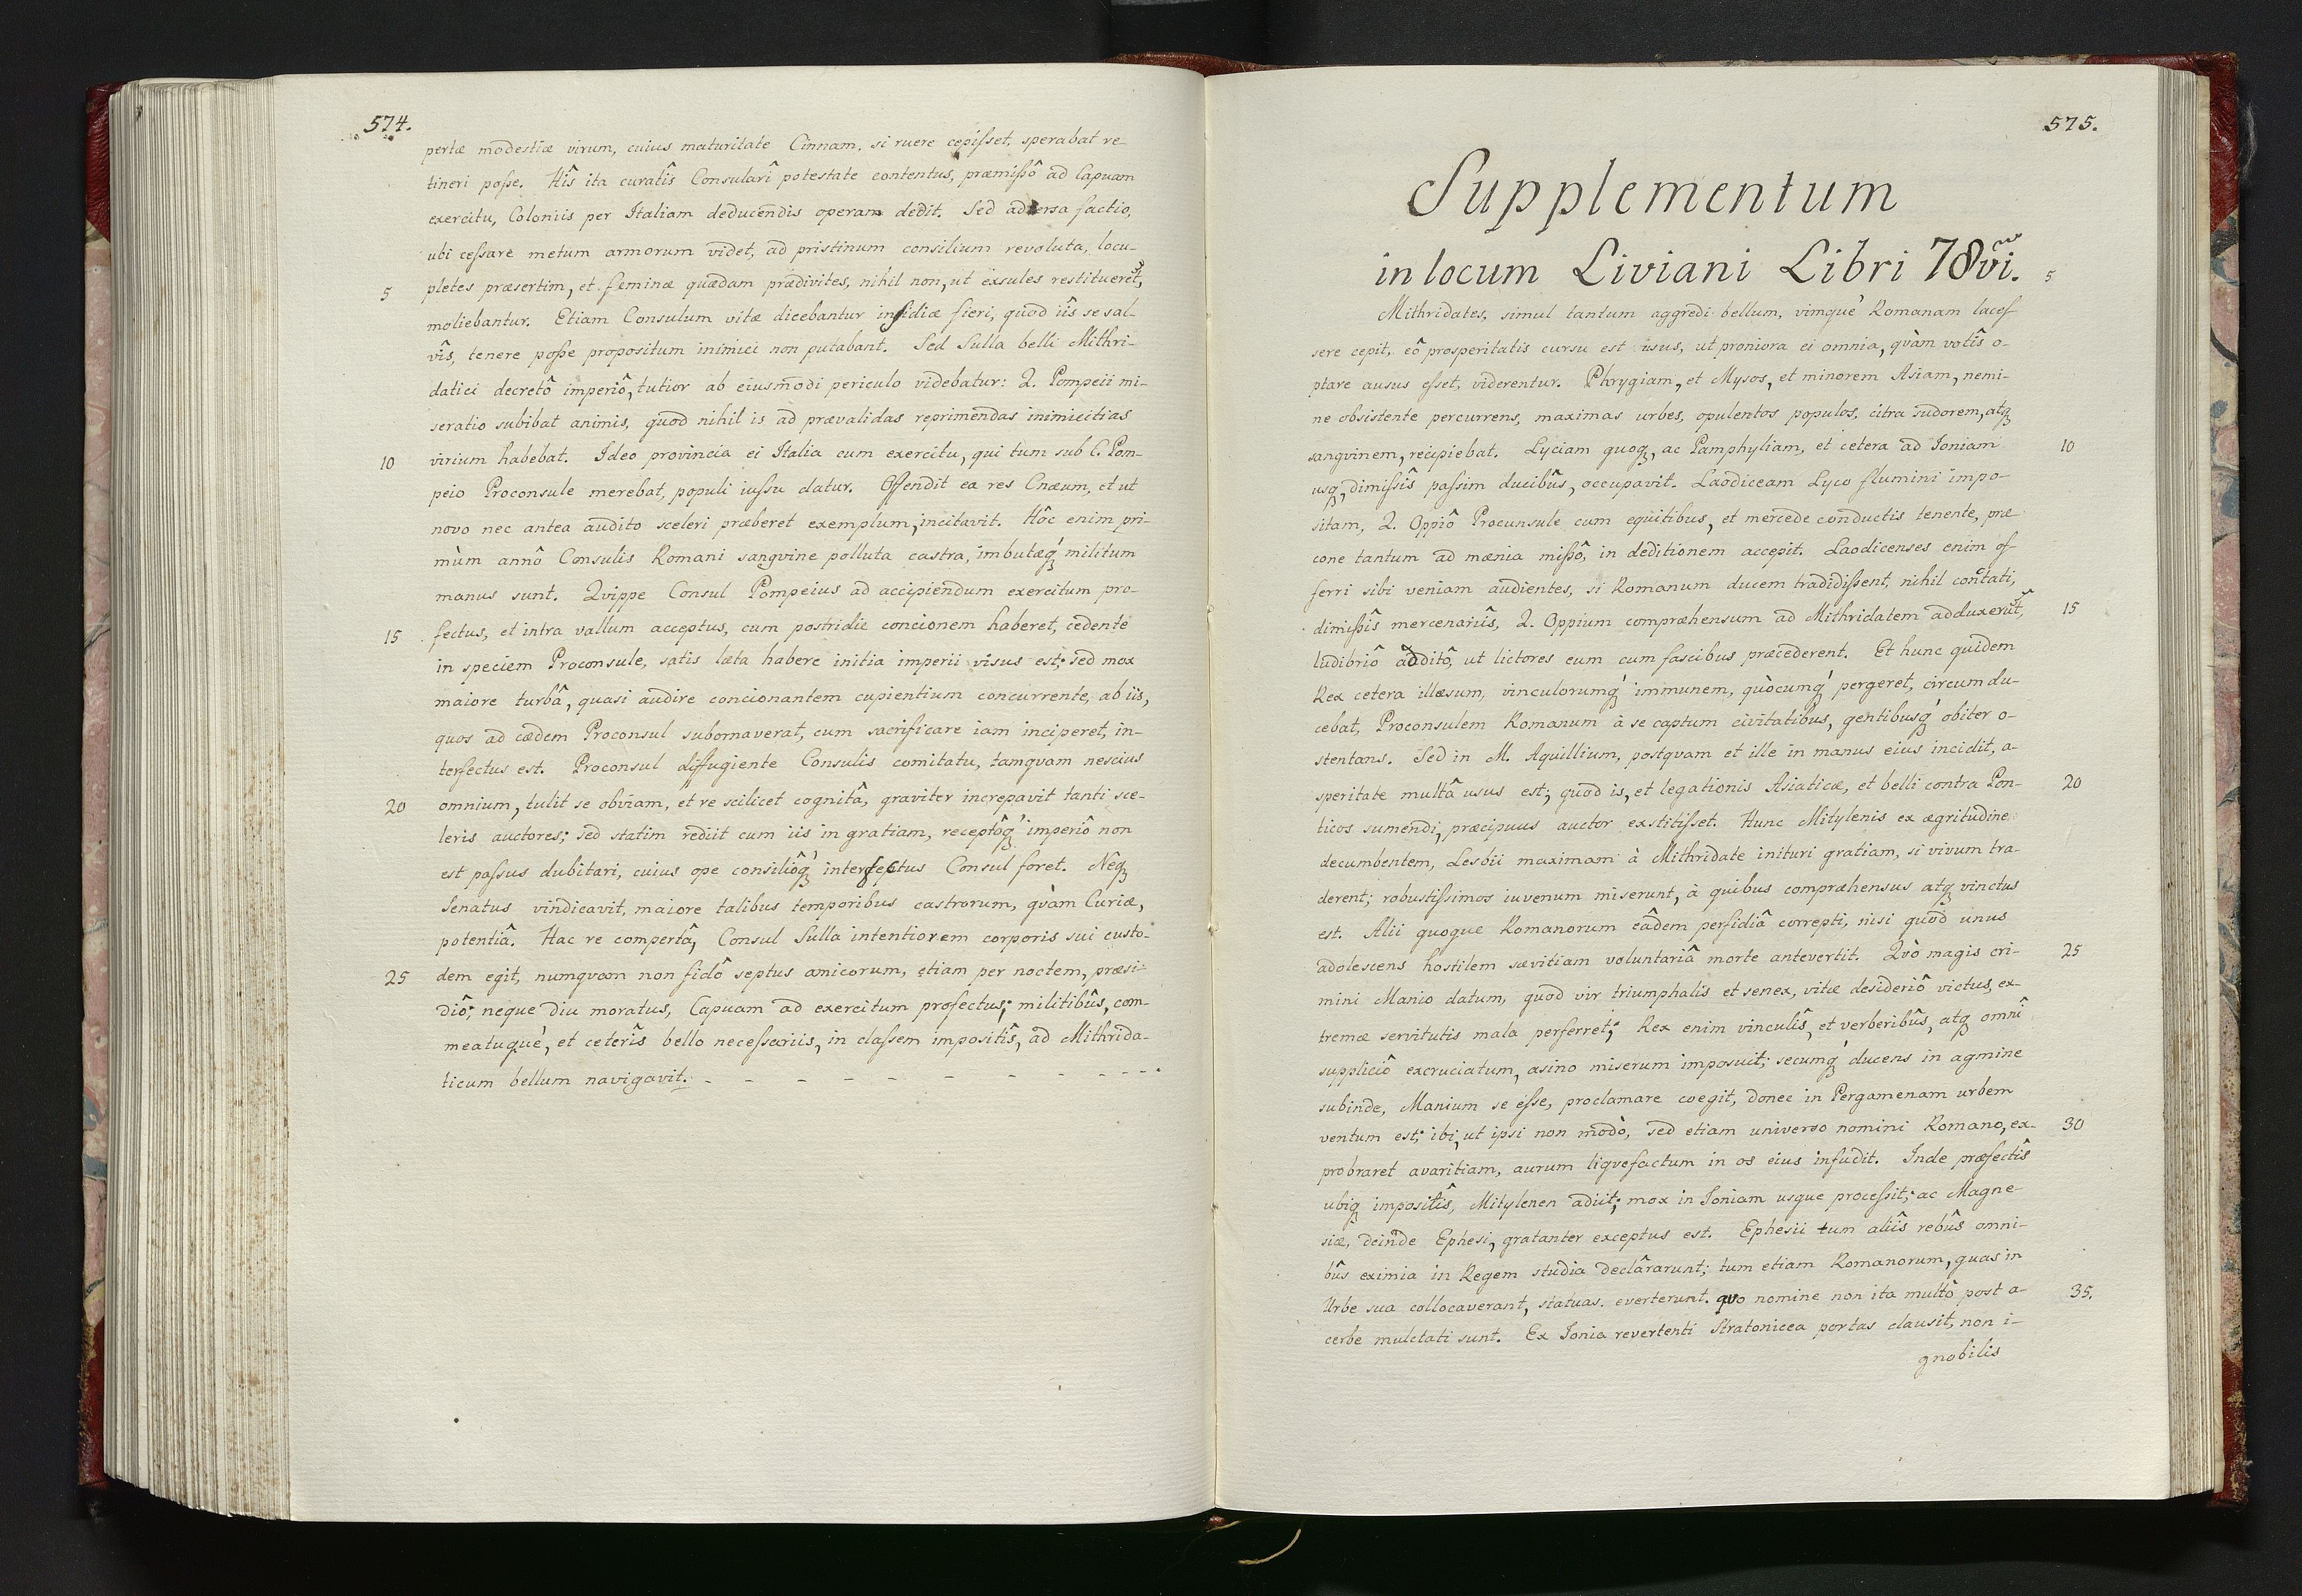 574.
pertæ modestiæ virum, cuius maturitate Cinnam, si ruere cepisset, sperabat re-
tineri posse. Hîs ita curatîs Consularî potestate contentus, præmissô ad Capuam
exercitu, Coloniis per Italiam deducendis operam dedit. Sed adversa factio,
ubi cessare metum armorum videt, ad pristinum consilium revoluta, locu-
5 pletes præsertim, et feminæ quædam prædivites, nihil non, ut exsules restituerêt,
moliebantur. Etiam Consulum vitæ dicebantur insidiæ fieri, quod iîs se sal-
vîs, tenere posse propositum inimici non putabant. Sed Sulla belli Mithri-
datici decretô imperiô, tutior ab eiusmodi periculo videbatur: Q. Pompeii mi-
seratio subibat animis, quod nihil is ad prævalidas reprimendas inimicitias
10 virium habebat. Ideo provincia ei Italia cum exercitu, qui tum sub C. Pom-
peio Proconsule merebat, populi iussu datur. Offendit ea res Cnæum, et ut
novo nec antea audito sceleri præberet exemplum, incitavit. Hôc enim pri-
mùm annô Consulis Romani sangvine polluta castra, imbutæq́ militum
manus sunt. Qvippe Consul Pompeius ad accipiendum exercitum pro-
15 fectus, et intra vallum acceptus, cum postridie concionem haberet, cedente
in speciem Proconsule, satis læta habere initia imperii visus est; sed mox
maiore turbâ, quasi audire concionantem cupientium concurrente, ab iis,
quos ad cædem Proconsul subornaverat, cum sacrificare iam inciperet, in-
terfectus est. Proconsul diffugiente Consulis comitatu, tamqvam nescius
20 omnium, tulit se obviam, et re scilicet cognitâ, graviter increpavit tanti sce-
leris auctores; sed statim rediit cum iis in gratiam, receptôq́ imperiô non
est passus dubitari, cuius ope consiliôq́ interfectus Consul foret. Neq
Senatus vindicavit, maiore talibus temporibus castrorum, qvàm Curiæ,
potentiâ. Hac re compertâ, Consul Sulla intentiorem corporis sui custo-
25 dem egit, numqvam non fidô septus amicorum, etiam per noctem, præsi-
diô; neque diu moratus, Capuam ad exercitum profectus; militibûs, com-
meatuquè, et ceterîs bello necessariis, in classem impositîs, ad Mithrida-
ticum bellum navigavit. - - - - - - - - - - - -
575.
Supplementum
in locum Liviani Libri 78vi. 5
Mithridates, simul tantum aggredi bellum, vimquè Romanam laces
sere cepit, eô prosperitatis cursu est usus, ut proniora ei omnia, qvàm votîs o-
ptare ausus esset, viderentur. Phrygiam, et Mysos, et minorem Asiam, nemi-
ne obsistente percurrens, maximas urbes, opulentos populos, citra sudorem, atq
sangvinem, recipiebat. Lyciam quoq, ac Pamphyliam, et cetera ad Ioniam 10
usq, dimissîs passim ducibûs, occupavit. Laodiceam Lyco flumini impo-
sitam, Q. Oppiô Procunsule cum eqvitibus, et mercede conductis tenente, præ
cone tantum ad mænia missô, in deditionem accepit. Laodicenses enim of
ferri sibi veniam audientes, si Romanum ducem tradidissent, nihil contati,
dimissîs mercenariîs, Q. Oppium compræhensum ad Mithridatem adduxerût, 15
ludibriô additô, ut lictores eum cum fascibus præcederent. Et hunc quidem
Rex cetera illæsum, vinculorumq́ immunem, quòcumq́ pergeret, circumdu-
cebat, Proconsulem Romanum à se captum civitatibus, gentibusq́ obiter o-
stentans. Sed in M. Aquillium, postqvam et ille in manus eius incidit, a-
speritate multâ usus est; quod is, et legationis Asiaticæ, et belli contra Pon- 20
ticos sumendi, præcipuus auctor exstitisset. Hunc Mitylenis ex ægritudine
decumbentem, Lesbii maximam à Mithridate inituri gratiam, si vivum tra-
derent; robustissimos iuvenum miserunt, à quibus compræhensus atq vinctus
est. Alii quoque Romanorum eâdem perfidiâ correpti, nisi quod unus
adolescens hostilem sævitiam voluntariâ morte antevertit. Qvò magis cri- 25
mini Manio datum, quod vir triumphalis et senex, vitæ desideriô victus, ex-
tremæ servitutis mala perferret; Rex enim vinculîs, et verberibûs, atq omnî
suppliciô excruciatum, asino miserum imposuit; secumq́ ducens in agmine
subinde, Manium se esse, proclamare coegit, donec in Pergamenam urbem
ventum est; ibi, ut ipsi non modò, sed etiam universo nomini Romano, ex- 30
probraret avaritiam, aurum liqvefactum in os eius infudit. Inde præfectîs
ubiq impositîs, Mitylenen adiit; mox in Ioniam usque processit; ac Magne-
siæ, deinde Ephesi, gratanter exceptus est. Ephesii tum aliîs rebûs omni-
bûs eximia in Regem studia declârarunt; tum etiam Romanorum, quas in
Urbe sua collocaverant, statuas everterunt. qvo nomine non ita multô post a- 35.
cerbe mulctati sunt. Ex Ionia revertenti Stratonicea portas clausit, non i-
gnobilis